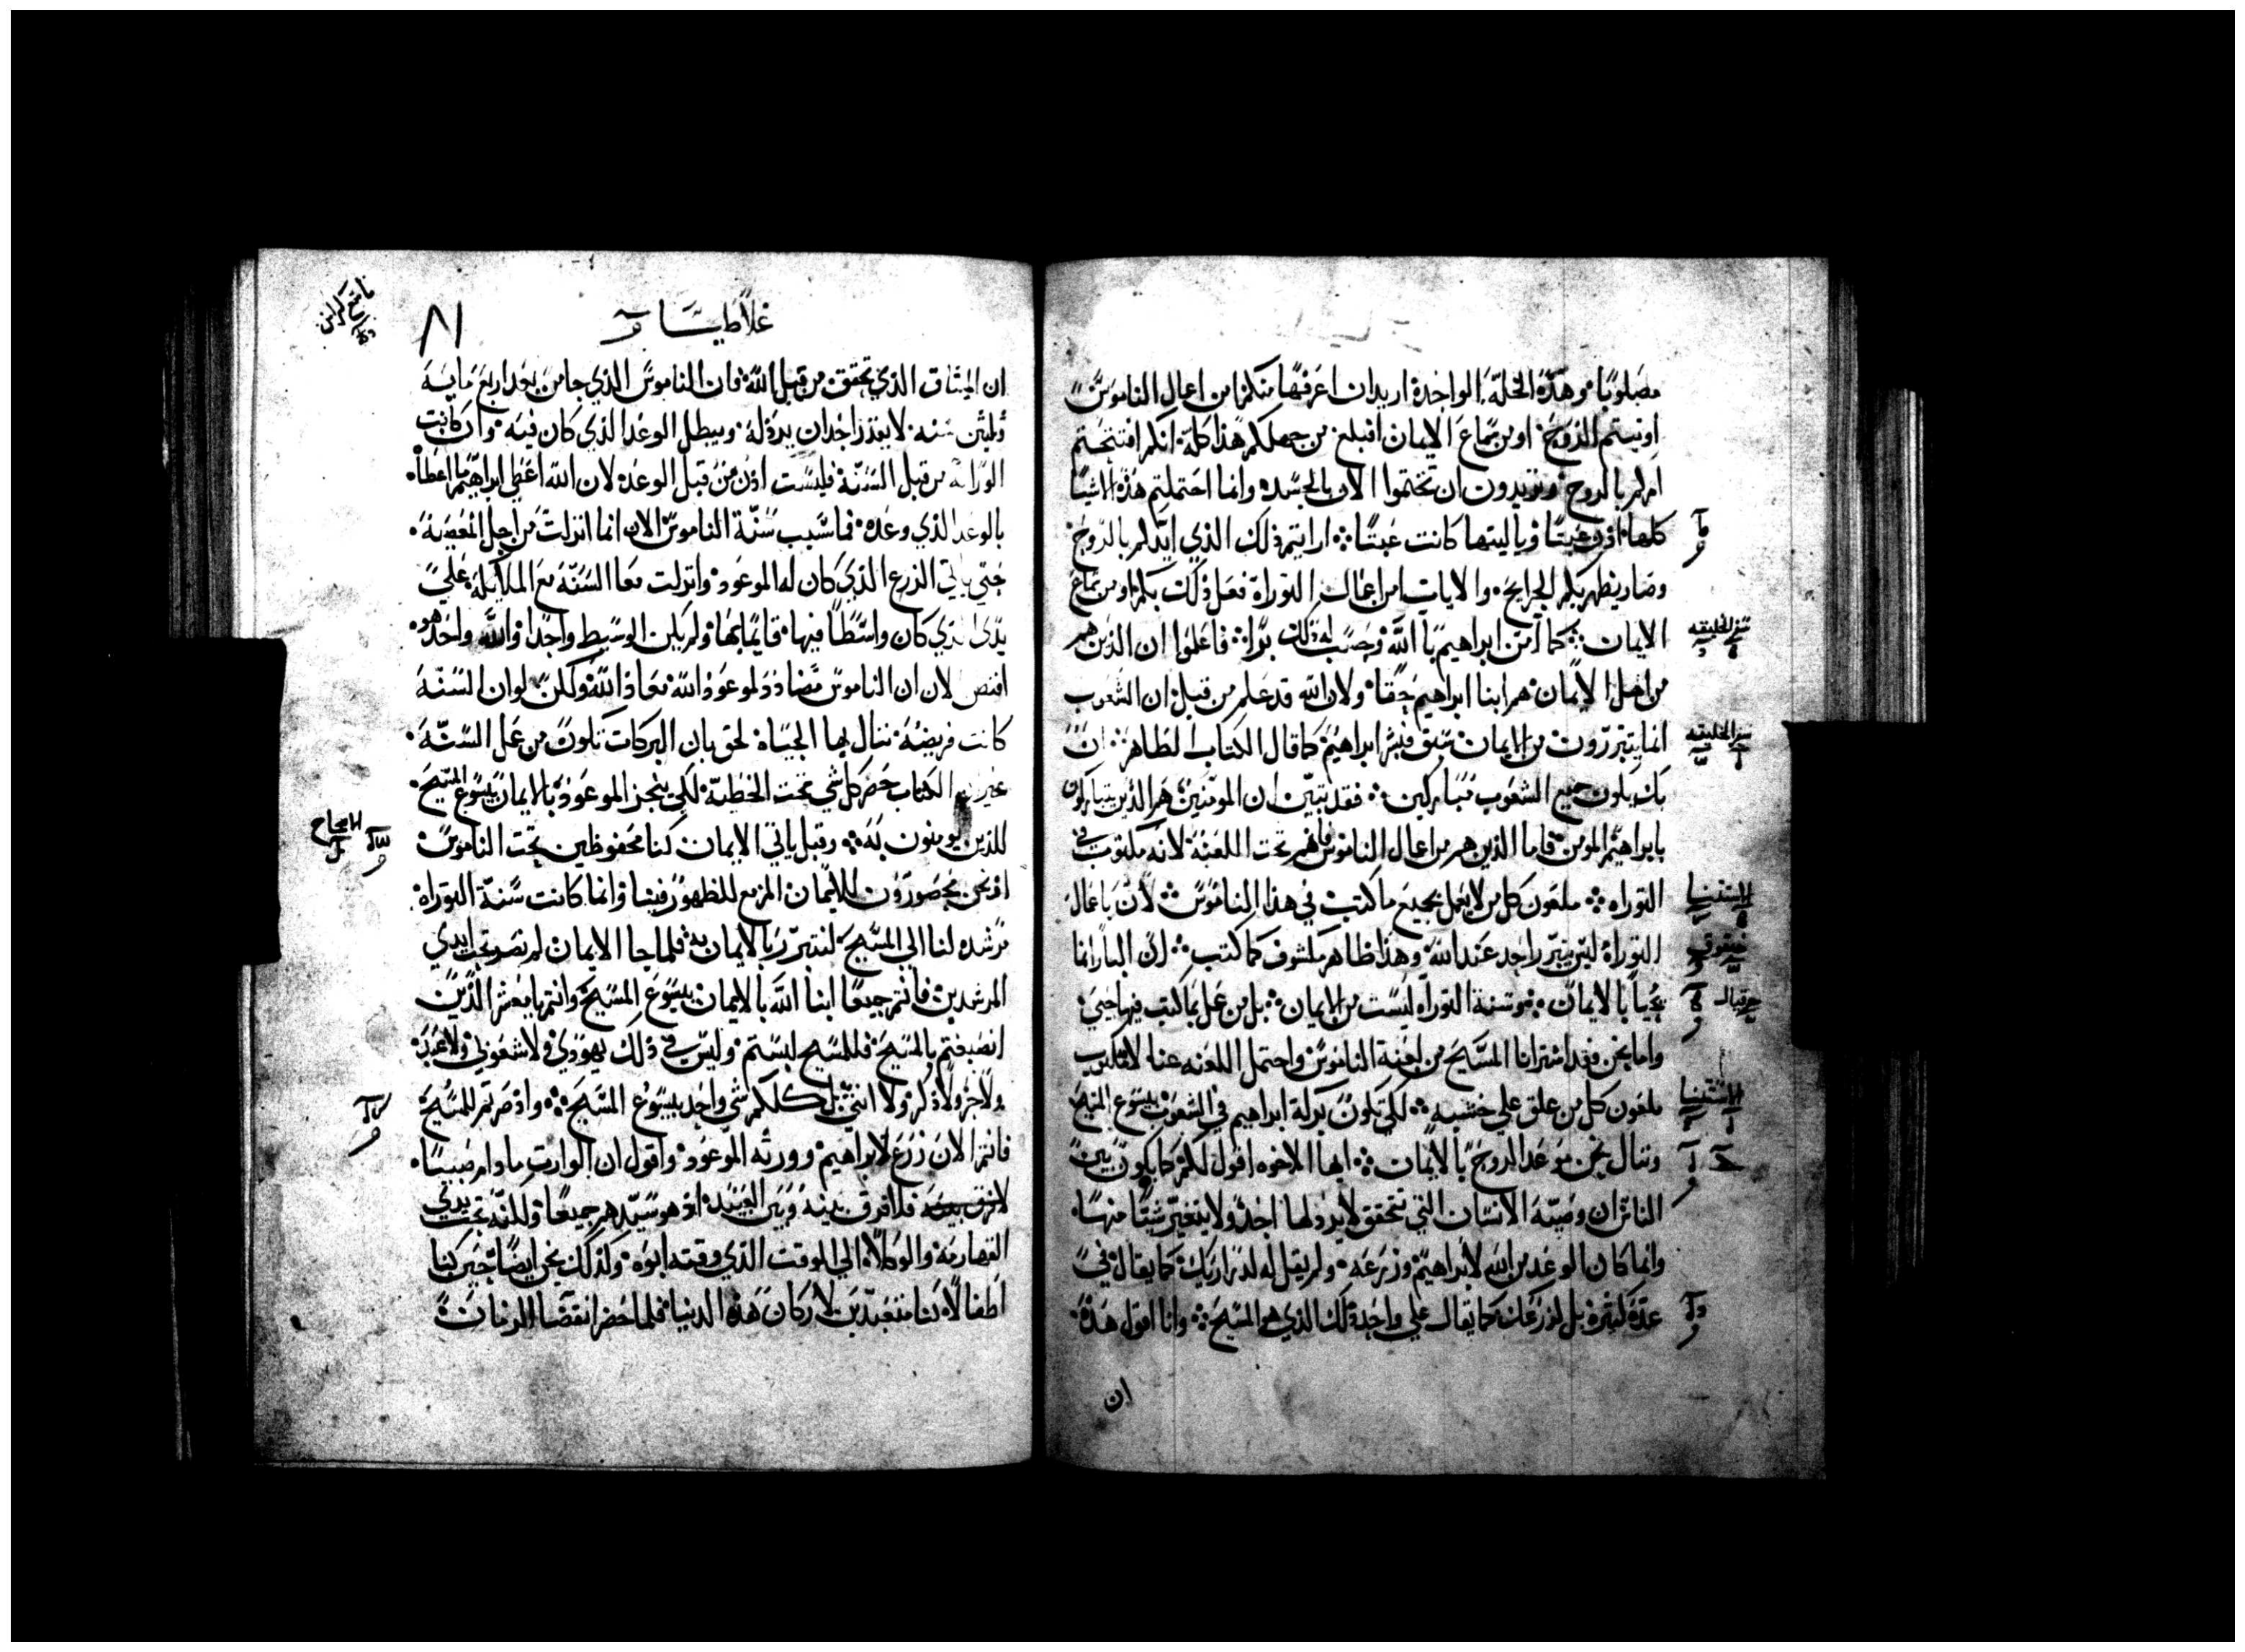 مصلوبًا۰ وهذه الخلة الواحدة اريد ان اعرفها منكم امن اعمال الناموس
اوتيتم الروح۰ او من سماع الايمان افبلغ من جهلكم هذا كله۰ انكم افتتحتم
امركم بالروح۰ وتريدون ان تختموا الان بالجسد۰ وانما احتملتم هذه الاشيا
كلها۰ اذن عبثًا وياليتها كانت عبثًا ۞ ارايتم ذلك الذي ايدكم بالروح
وصار يظهر بكم الجرايح۰ والايات امن اعمال التوراة فعل ذلك بكم او من سماع
الايمان ۞ كما آمن ابراهيم بالله وحسب له ذلك برًا ۞ فاعلموا ان الذين هم
من اهل الايمان۰ هم ابنا ابراهيم حقًا۰ ولان الله قد علم من قبل ان الشعوب
انما يتبررون من الايمان سبق فبشر ابراهيم۰ كما قال الكتاب الطاهر۰ ان
بك يكون جميع الشعوب مباركين ۞ فقد تبين ان المومنين هم الذين يتباركون
بابراهيم المومن فاما الذين هم من اعمال الناموس فانهم تحت اللعنة لانه مكتوب في
التوراه ۞ ملعون كل من لا يعمل بجميع ما كتب في هذا الناموس ۞ لان باعمال
التوراة ليس يتبرر احد عند الله وهذا ظاهر مكشوف كما كتب ۞ ان البار انما
يحيا بالايمان۰ وسنة التوراه ليست من الايمان ۞ بل من عمل بما كتب فيها حيي
واما نحن فقد اشترانا المسيح من لعنة الناموس واحتمل اللعنه عنا لانه كتب
ملعون كل من علق علي خشبه ۞ لكي تكون بركة ابراهيم في الشعوب بيسوع المسيح
وننال نحن موعد الروح بالايمان ۞ ايها الاخوه اقول لكم كما يكون بين
الناس ان وصيه الانسان التي تتحقق لا يرذلها احد ولا يتغير شيًا منها۰
وانما كان الوعد من الله لابراهيم وزرعه۰ ولم يقل له لذراريك۰ كما يقال في
عدة كثيرة بل لزرعك كما يقال علي واحد ذلك الذي هو المسيح ۞ وانا اقول هذه
ان
سفر الخليقه
سفر الخليقه
الاستثنا
حبقوق
حزقيال
الاستثنا
غلاطيسا
٨١
ان الميثاق الذي تحقق من قبل الله۰ فان الناموس الذي جا من بعد اربع مايه
وثلثين سنه۰ لا يقدر احد ان يرذله۰ ويبطل الوعد الذي كان فيه۰ وان كانت
الوراثة من قبل السنة فليست اذن من قبل الوعد۰ لان الله اعطي ابراهيم ما اعطاه
بالوعد الذي وعده۰ فما سبب سنة الناموس الان انما انزلت من اجل المعصية۰
حتي ياتي الزرع الذي كان له الموعود۰ وانزلت معا السنة مع الملايكة علي
يدي الذي كان واسطًا فيها۰ قايمًا بها۰ ولم يكن الوسيط واحدا والله واحد هو۰
افتص لان ان الناموس مضادد لموعود الله معاذ الله ولكن لو ان السنه
كانت فريضه۰ تنال بها الحياة۰ لحق بان البركات تكون من عمل السنه۰
غير ان الكتاب حصر كل شي تحت الخطية۰ لكي ينجز الموعود بالايمان بيسوع المسيح۰
للذين يومنون به ۞ وقبل ياتي الايمان كنا محفوظين تحت الناموس
اذ نحن محصورون للايمان المزمع للظهور فينا وانما كانت سنة التوراة
مرشده لنا الي المسيح لنتبرر بالايمان به فلما جا الايمان لم نصر تحت ايدي
المرشدين۰ فانتم جميعا ابنا الله بالايمان بيسوع المسيح وانتم يا معشر الذين
انصبغتم بالمسيح۰ فللمسيح لبستم۰ وليس في ذلك يهودي ولا شعوبي ولا عبد۰
ولا حر ولا ذكر ولا انثي۰ بل كلكم شي واحد بيسوع المسيح ۞ واذ صرتم للمسيح
فانتم الان زرع لابراهيم۰ وورثه الموعود۰ واقول ان الوارث ما دام صبيا۰
فلا فرق بينه وبين العبيد۰ اذ هو سيدهم جميعًا۰ ولكنه تحت يدي
القهارمة والوكلا۰ الي الوقت الذي وقته ابوه۰ وكذلك نحن ايضًا حين كنا
اطفالًا كنا متعبدين لاركان هذه الدنيا فلما حضر انقضا الزمان
الاصحاح